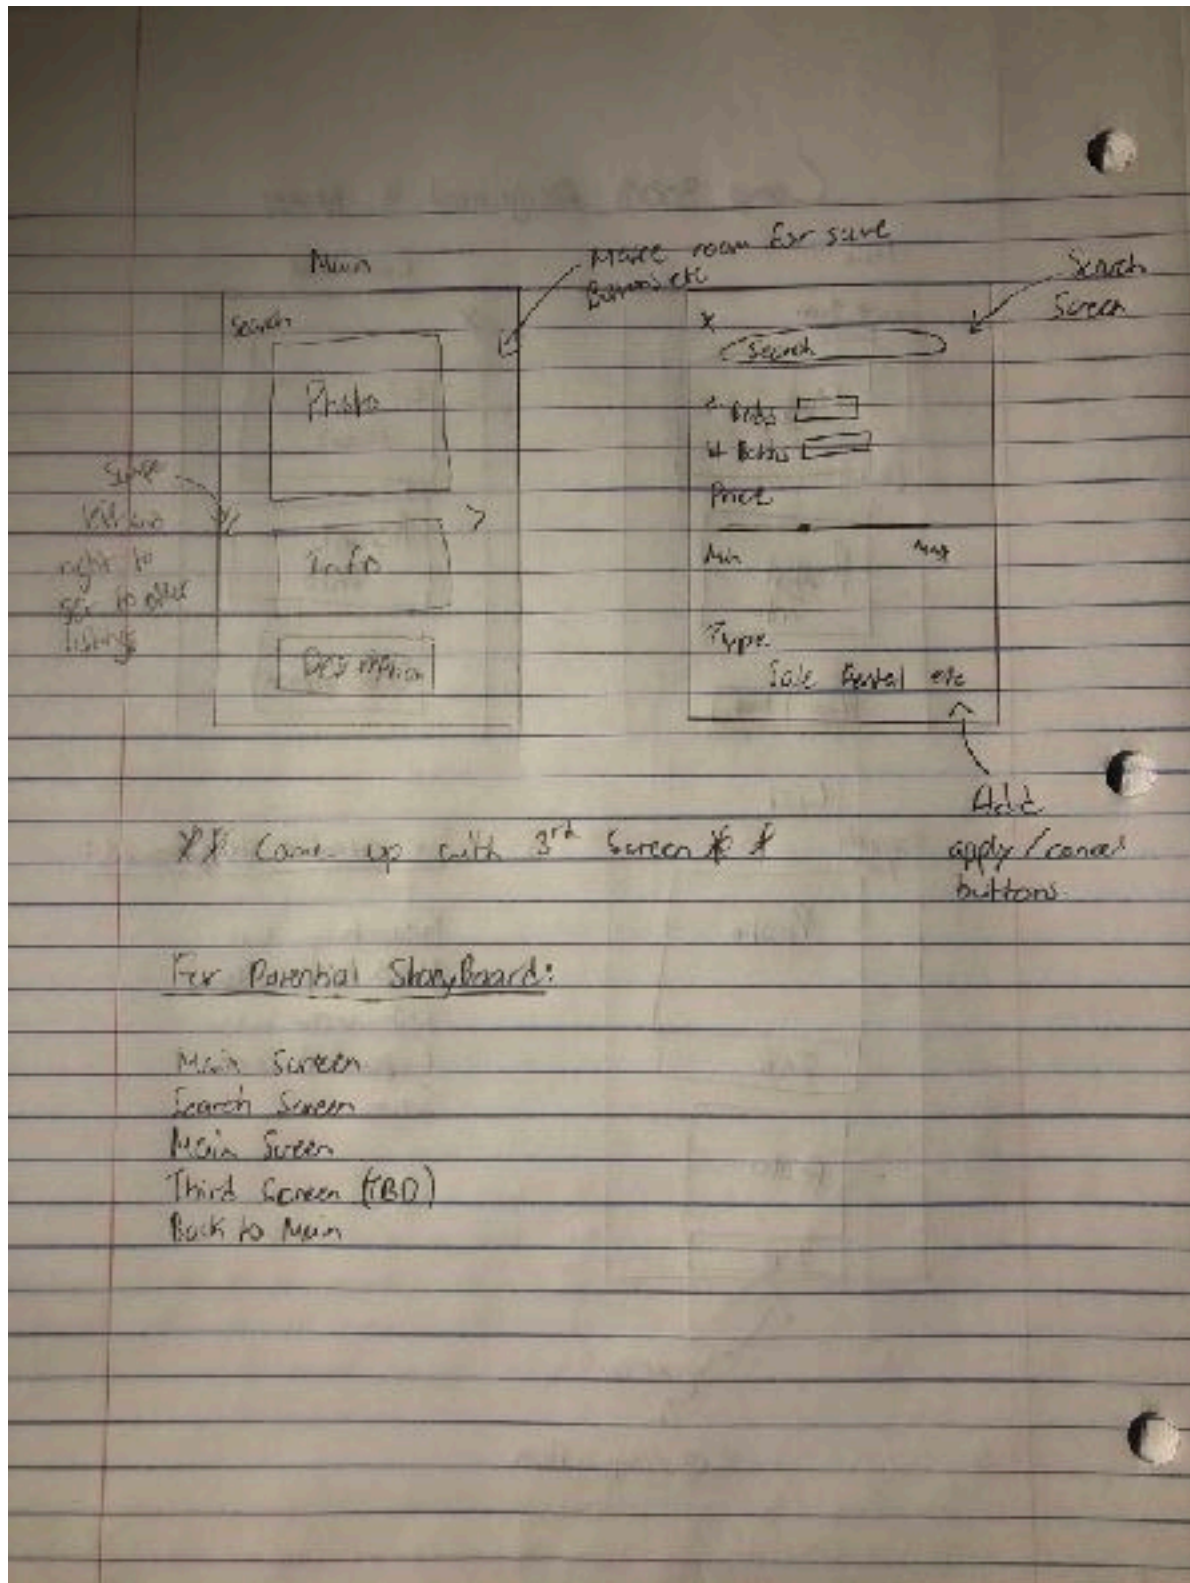 Main
Make room for save
Buttons etc
Search
Screen
Search
Photo
Info
Description
right to
to other
listings
X
Search
# Beds
# Baths
Price
Min Max
Type
Sale Rental etc
Add
apply/cancel
buttons
** Come up with 3rd Screen **
For Potential StoryBoard:
Main Screen
Search Screen
Main Screen
Third Screen (TBD)
Back to Main